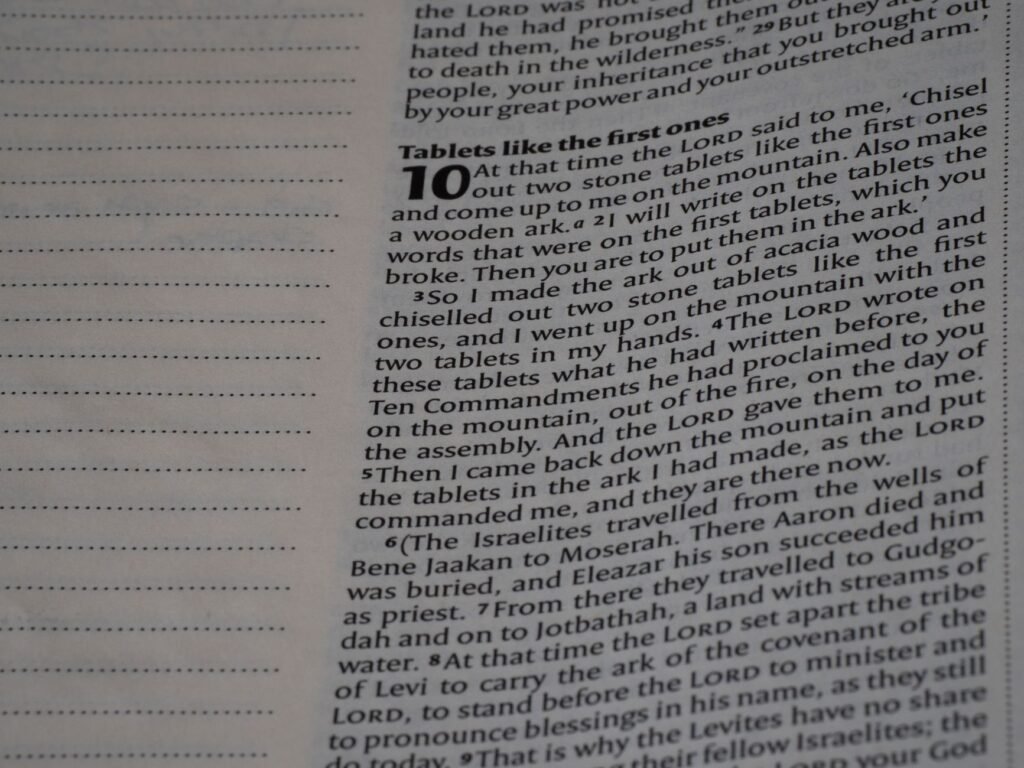 the LORD was not
land he had promised
hated them, he brought them
to death in the wilderness." 29 But they
people, your inheritance that you brought out
by your great power and your outstretched arm.'
Tablets like the first ones
10 At that time the LORD said to me, 'Chisel
out two stone tablets like the first ones
and come up to me on the mountain. Also make
a wooden ark.a 2 I will write on the tablets the
words that were on the first tablets, which you
broke. Then you are to put them in the ark.'
3 So I made the ark out of acacia wood and
chiselled out two stone tablets like the first
ones, and I went up on the mountain with the
two tablets in my hands. 4 The LORD wrote on
these tablets what he had written before, the
Ten Commandments he had proclaimed to you
on the mountain, out of the fire, on the day of
the assembly. And the LORD gave them to me.
5 Then I came back down the mountain and put
the tablets in the ark I had made, as the LORD
commanded me, and they are there now.
6 (The Israelites travelled from the wells of
Bene Jaakan to Moserah. There Aaron died and
was buried, and Eleazar his son succeeded him
as priest. 7 From there they travelled to Gudgo-
dah and on to Jotbathah, a land with streams of
water. 8 At that time the LORD set apart the tribe
of Levi to carry the ark of the covenant of the
LORD, to stand before the LORD to minister and
to pronounce blessings in his name, as they still
do today. 9 That is why the Levites have no share
their fellow Israelites; the
LORD your God